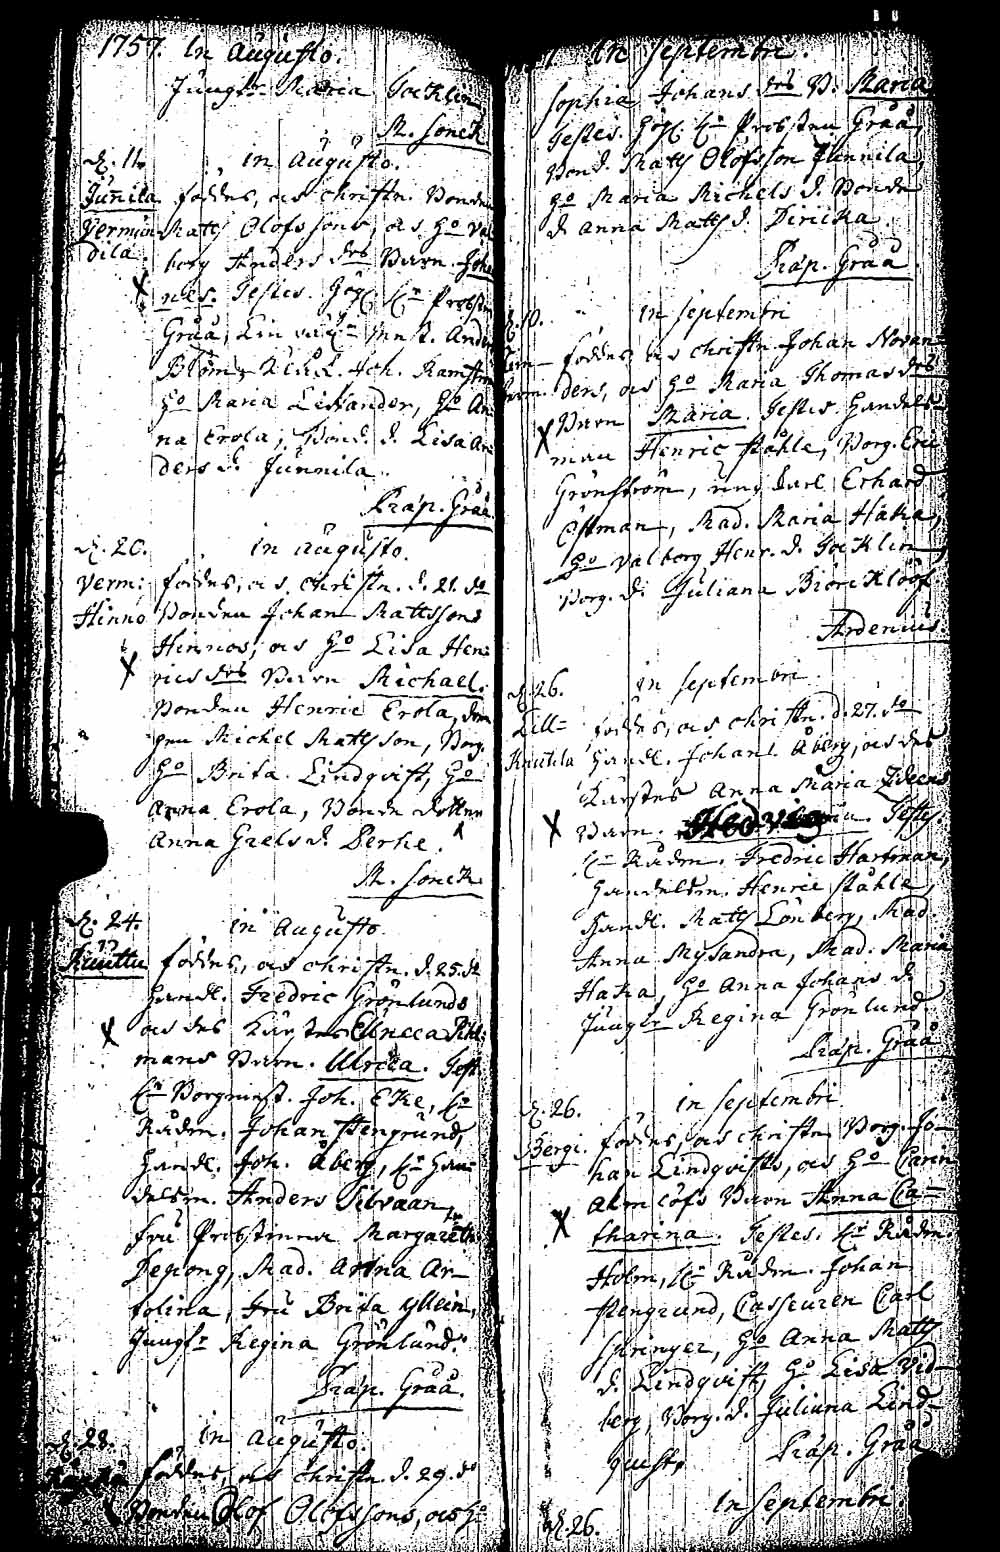 1757. In Augusto.
Jungfr. Maria Gocklin
M. Sonck
d. 11.
in Augusto.
Junnila
föddes, och christn. Bonden
Matts Olofssons, och H:o Val
borg Anders drs Barn Joha
nnes. Testes. Hög H:r Probsten
Gråå,
Anders
Blom,
Joh. Ramstr
H:o Maria Lexander, H:o An
na Erola, Bond. d. Lisa An
ders d. Junnila.
Præp. Gråå.
d. 20.
in Augusto.
Verm:
Hinno
föddes, och christn. d. 21. do
Bonden Johan Mattssons
Hinnos, och H:o Lisa Hen
rics drs Barn Michael.
Bonden Henric Erola, dren
gen Michel Mattsson, Borg.
H:o Brita Lindqvist, H:o
Anna Erola, Bonde dotter
Anna Grels d. Perhe.
M. Sonck
d. 24.
in Augusto
Knuttu
föddes, och christn. d. 25. do
Handl. Fredric Grönlunds
och des Kärestas Ulricca
mans Barn. Ulrica. Test.
H:r Borgmest. Joh. Eke, H:r
Rådm. Johan Stengrund,
Handl. Joh. Åberg, H:r Han
delsm. Anders Silvaan,
fru Probstinnan Margareth
Depiong, Mad. Anna Ar-
tolina, Fru Brita Yllein,
Jungfr Regina Grönlund.
Præp. Gråå.
d. 28.
in Augusto.
föddes, och christn. d. 29. do
Bonden Olof Olofssons, och H:o
In Septembri.
Sophia Johans drs B. Maria
Testes. Hög H:r Probsten Gråå,
Bond. Matts Olofsson Junnila,
H:o Maria Michels d. Bonde
d. Anna Matts d. Diricka
Præp. Gråå
d. 10.
in Septembri
föddes och christn. Johan Novan-
ders, och H:o Maria Thomas drs
Barn Maria. Testes. Handels-
man Henric Ståhle, Borg. Eric
Grönström, ung Karl Erhard
Östman, Mad. Maria Haka,
H:o Valborg Henr. d. Gocklin,
Borg. d. Juliana Biörcklööf
Ardenius.
d. 26.
in Septembri
Lill-
Knutila
föddes, och christn. d. 27. do
Handl. Johan Åberg, och des
Kärestas Anna Maria Ideens
Barn. Hedvig
Testes.
H:r Rådm. Fredric Hartman,
Handelsm. Henric Ståhle,
Handl. Matts Lönberg, Mad.
Anna Mysandra, Mad. Maria
Haka, H:o Anna Johans d.
Jungfr Regina Grönlund.
Præp. Gråå
d. 26.
in Septembri
Bergi.
föddes, och christn. Borg. Jo-
han Lindqvists, och H:o Carin
Almlöfs Barn Anna Ca-
tharina. Testes. H:r Rådm.
Holm, H:r Rådm. Johan
Stengrund, Casseuren Carl
Springer, H:o Anna Matts
d. Lindqvist, H:o Lisa Vid-
berg, Borg. d. Juliana Lind-
quist.
Præp. Gråå
In Septembri.
d. 26.